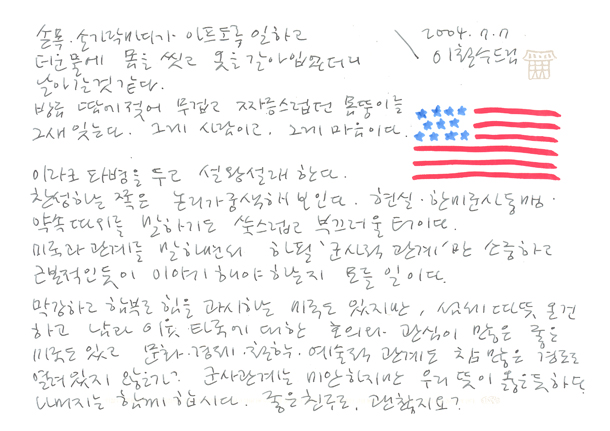 손목·손가락마디가 아프도록 일하고
더운물에 몸을 씻고 옷을 갈아입었더니
날아갈것 같다.
방금 땀에 젖어 무겁고 짜증스럽던 몸뚱이를
그새 잊는다. 그게 사람이고. 그게 마음이다.
2004.7.7
이철수드림
이라크 파병을 두고 설왕설래 한다.
찬성하는 쪽은 논리가궁색해 보인다. 현실·한미군사동맹·
약속 따위를 말하기도 쑥스럽고 부끄러울 터이다.
미국과 관계를 말하면서 하필 '군사적 관계'만 소중하고
근본적인듯이 이야기해야 하는지 모를 일이다.
막강하고 함부로 힘을 과시하는 미국도 있지만, 섬세 따뜻 온건
하고 남과 이웃 타국에 대한 호의와 관심이 많은 좋은
미국도 있고 문화·경제·과학·예술적 관계도 참 많은 경로로
열려있지 않은가? 군사관계는 미안하지만 우리 뜻이 옳은듯하다.
나머지는 함께 합시다. 좋은친구로. 괜찮지요?